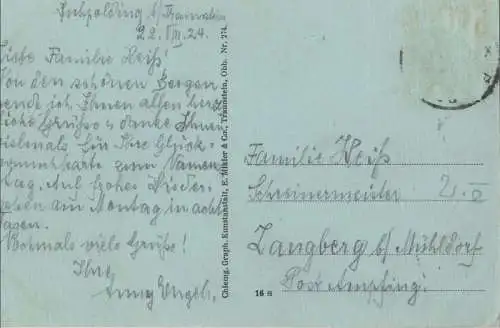 Ruhpolding b/Traunstein
22. VIII. 24.
Liebe Familie Heiß!
Von den schönen Bergen
sende ich Ihnen allen herz-
liche Grüße u. danke Ihnen
vielmals für Ihre Glück-
wunschkarte zum Namen-
tag. Auf frohes Wieder-
sehen am Montag in acht
Tagen.
Nochmals viele Grüße!
Ihre
Anny
Chiemg. Graph. Kunstanstalt, E. & Co., Traunstein, Obb. Nr. 274.
Familie Heiß
Schreinermeister
Langberg b/Mühldorf
Post Ampfing.
16 n